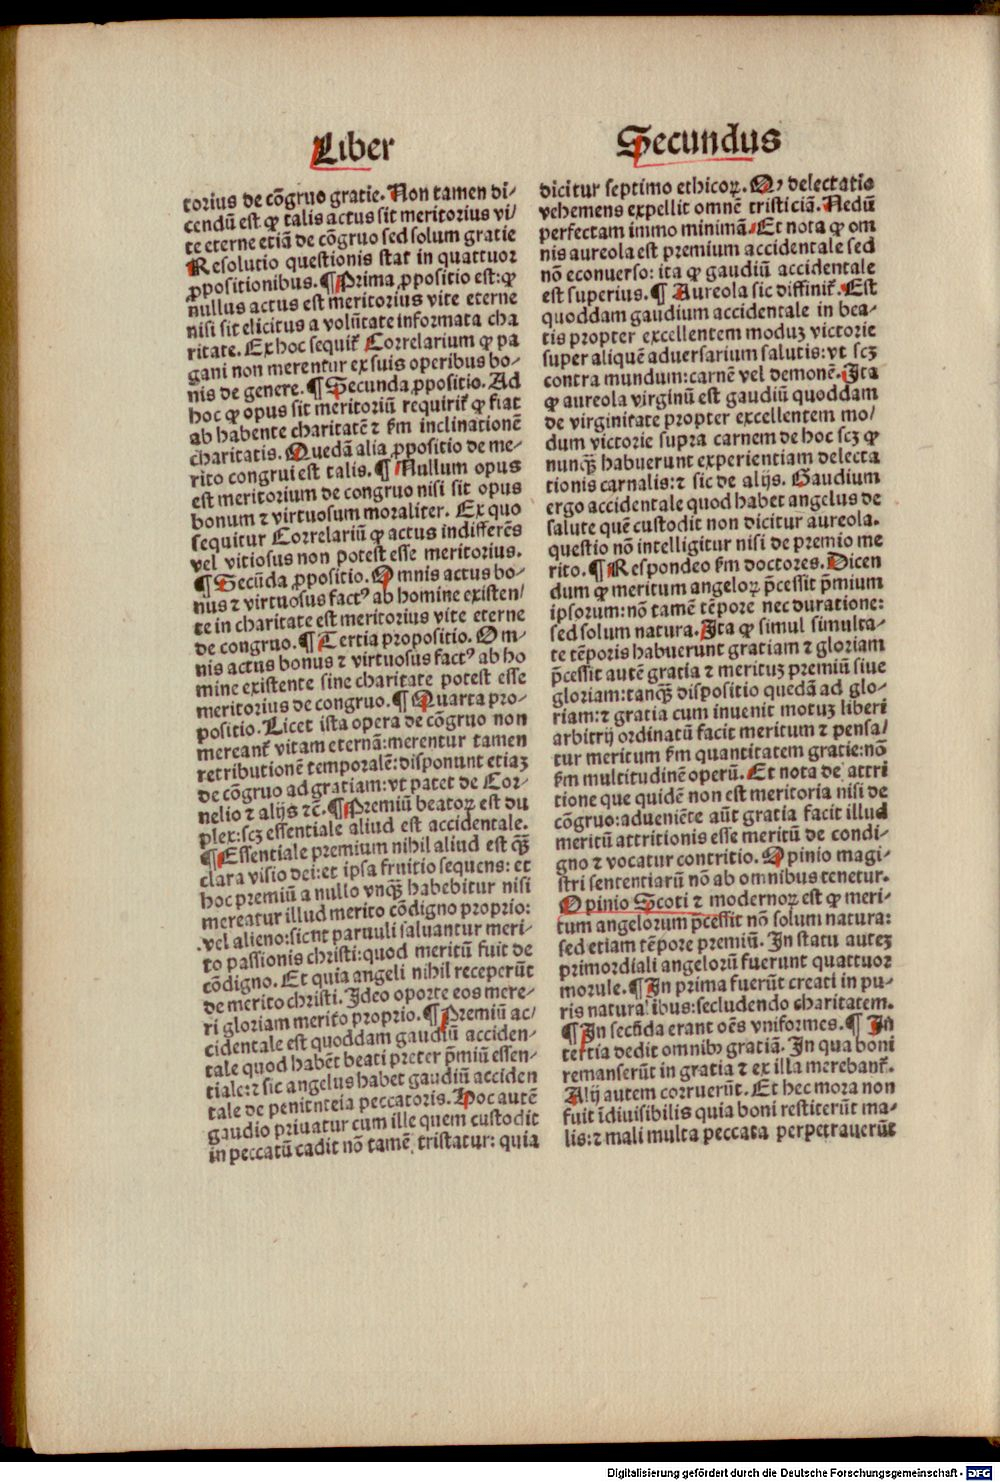 Liber
Secundus
torius de cōgruo gratie. Non tamen di⸗
cendū est ꝙ talis actus sit meritorius vi/
te eterne etiā de cōgruo sed solum gratie
Resolutio questionis stat in quattuor
ꝓpositionibus. ¶ Prima ꝓpositio est: ꝙ
nullus actus est meritorius vite eterne
nisi sit elicitus a volūtate informata cha
ritate. Ex hoc sequit᷑ Correlarium ꝙ pa
gani non merentur ex suis operibus bo⸗
nis de genere. ¶ Secunda ꝓpositio. Ad
hoc ꝙ opus sit meritoriū requirit᷑ ꝙ fiat
ab habente charitatē ⁊ ẜm inclinationē
charitatis. Quedā alia ꝓpositio de me⸗
rito congrui est talis. ¶ Nullum opus
est meritorium de congruo nisi sit opus
bonum ⁊ virtuosum moraliter. Ex quo
sequitur Correlariū ꝙ actus indifferēs
vel vitiosus non potest esse meritorius.
¶ Secūda ꝓpositio. Omnis actus bo⸗
nus ⁊ virtuosus factꝰ ab homine existen/
te in charitate est meritorius vite eterne
de congruo. ¶ Tertia propositio. Om⸗
nis actus bonus ⁊ virtuosus factꝰ ab ho
mine existente sine charitate potest esse
meritorius de congruo. ¶ Quarta pro⸗
positio. Licet ista opera de cōgruo non
mereant᷑ vitam eternā: merentur tamen
retributionē temporalē: disponunt etiaꝫ
de cōgruo ad gratiam: vt patet de Cor⸗
nelio ⁊ alijs ⁊c̄. ¶ Premiū beatoꝝ est du
plex: scꝫ essentiale aliud est accidentale.
¶ Essentiale premium nihil aliud est qͣꝫ
clara visio dei: et ipsa fruitio sequens: et
hoc premiū a nullo vnqͣꝫ habebitur nisi
mereatur illud merito cōdigno proprio:
vel alieno: sicnt paruuli saluantur meri⸗
to passionis christi: quod meritū fuit de
cōdigno. Et quia angeli nihil receperūt
de merito christi. Ideo oporte eos mere⸗
ri gloriam merito proprio. ¶ Premiū ac/
cidentale est quoddam gaudiū acciden⸗
tale quod habēt beati preter p̄miū essen⸗
tiale: ⁊ sic angelus habet gaudiū acciden
tale de penitnteia peccatoris. Hoc autē
gaudio priuatur cum ille quem custodit
in peccatū cadit nō tamē tristatur: quia
dicitur septimo ethicoꝝ. Q, delectatio
vehemens expellit omnē tristiciā. Nedū
perfectam immo minimā. Et nota ꝙ om
nis aureola est premium accidentale sed
nō econuerso: ita ꝙ gaudiū accidentale
est superius. ¶ Aureola sic diffinit᷑. Est
quoddam gaudium accidentale in bea⸗
tis propter excellentem moduꝫ victorie
super aliquē adversarium salutis: vt scꝫ
contra mundum: carnē vel demonē. Ita
ꝙ aureola virginū est gaudiū quoddam
de virginitate propter excellentem mo/
dum victorie supra carnem de hoc scꝫ ꝙ
nunqͣꝫ habuerunt experientiam delecta
tionis carnalis: ⁊ sic de alijs. Gaudium
ergo accidentale quod habet angelus de
salute quē custodit non dicitur aureola.
questio nō intelligitur nisi de premio me
rito. ¶ Respondeo ẜm doctores. Dicen
dum ꝙ meritum angeloꝝ p̄cessit p̄mium
ipsorum: nō tamē tēpore nec duratione:
sed solum natura. Ita ꝙ simul simulta⸗
te tēporis habuerunt gratiam ⁊ gloriam
p̄cessit autē gratia ⁊ merituꝫ premiū siue
gloriam: tanqͣꝫ dispositio quedā ad glo⸗
riam: ⁊ gratia cum inuenit motuꝫ liberi
arbitrij ordinatū facit meritum ⁊ pensa/
tur meritum ẜm quantitatem gratie: nō
ẜm multitudinē operū. Et nota de attri
tione que quidē non est meritoria nisi de
cōgruo: adueniēte aūt gratia facit illud
meritū attritionis esse meritū de condi⸗
gno ⁊ vocatur contritio. Opinio magi⸗
stri sententiarū nō ab omnibus tenetur.
Opinio Scoti ⁊ modernoꝝ est ꝙ meri⸗
tum angelorum p̄cessit nō solum natura:
sed etiam tēpore premiū. In statu auteꝫ
primordiali angelorū fuerunt quattuor
morule. ¶ In prima fuerūt creati in pu⸗
ris natural ibus: secludendo charitatem.
¶ In secūda erant oēs vniformes. ¶ In
tertia dedit omnibꝰ gratiā. In qua boni
remanserūt in gratia ⁊ ex illa merebant᷑.
Alij autem corruerūt. Et hec mora non
fuit īdiuisibilis quia boni restiterūt ma⸗
lis: ⁊ mali multa peccata perpetrauerūt
Digitalisierung gefördert durch die Deutsche Forschungsgemeinschaft - DFG